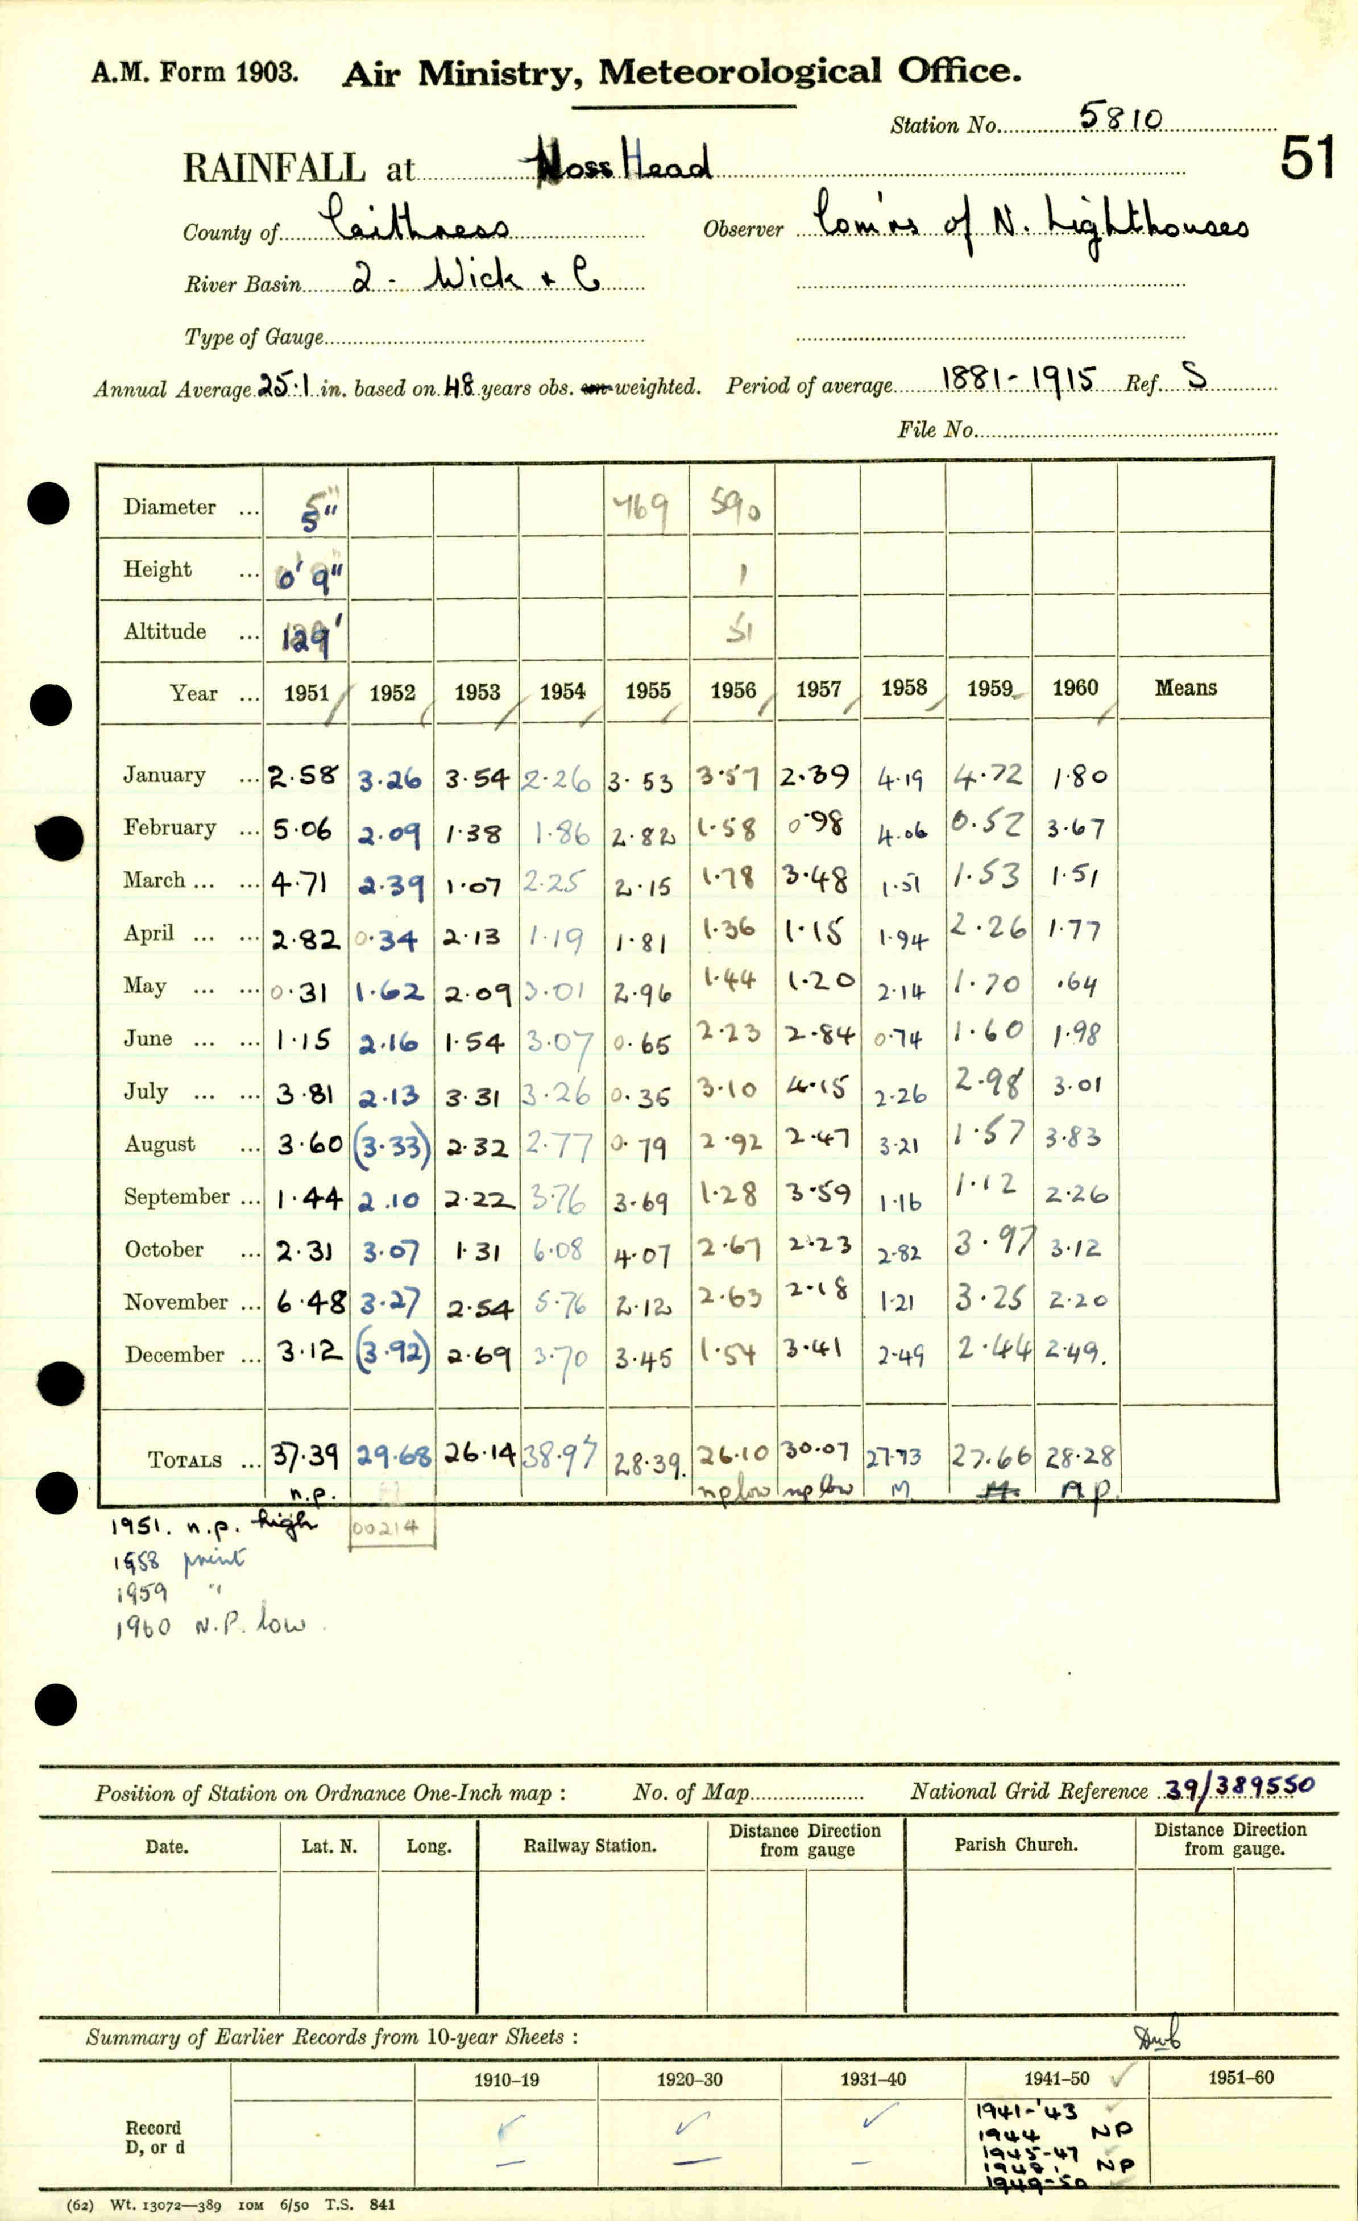 A.M. Form 1903. Air Ministry, Meteorological Office.
Station No. 5810
51
RAINFALL at Noss Head
County of Caithness Observer Com'rs of N. Lighthouses
River Basin 2 - Wick + C
Type of Gauge
Annual Average 25.1 in. based on 48 years obs. un-weighted. Period of average 1881-1915 Ref. S
File No.
Diameter ... 5" 769 590
Height ... 0' 9" 1
Altitude ... 129' 51
Year ... 1951 1952 1953 1954 1955 1956 1957 1958 1959 1960 Means
January ... 2.58 3.26 3.54 2.26 3.53 3.57 2.39 4.19 4.72 1.80
February ... 5.06 2.09 1.38 1.86 2.82 1.58 0.98 4.06 0.52 3.67
March ... ... 4.71 2.39 1.07 2.25 2.15 1.78 3.48 1.51 1.53 1.51
April ... ... 2.82 0.34 2.13 1.19 1.81 1.36 1.15 1.94 2.26 1.77
May ... ... 0.31 1.62 2.09 3.01 2.96 1.44 1.20 2.14 1.70 .64
June ... ... 1.15 2.16 1.54 3.07 0.65 2.23 2.84 0.74 1.60 1.98
July ... ... 3.81 2.13 3.31 3.26 0.35 3.10 4.15 2.26 2.98 3.01
August ... 3.60 (3.33) 2.32 2.77 0.79 2.92 2.47 3.21 1.57 3.83
September ... 1.44 2.10 2.22 3.76 3.69 1.28 3.59 1.16 1.12 2.26
October ... 2.31 3.07 1.31 6.08 4.07 2.67 2.23 2.82 3.97 3.12
November ... 6.48 3.27 2.54 5.76 2.12 2.63 2.18 1.21 3.25 2.20
December ... 3.12 (3.92) 2.69 3.70 3.45 1.54 3.41 2.49 2.44 2.49.
TOTALS ... 37.39 29.68 26.14 38.97 28.39. 26.10 30.07 27.73 27.66 28.28
n.p. np low np low M n p.
1951. n.p. high 00214
1958 print
1959 "
1960 N.P. low.
Position of Station on Ordnance One-Inch map : No. of Map National Grid Reference 39/389550
Date. Lat. N. Long. Railway Station. Distance Direction from gauge Parish Church. Distance Direction from gauge.
Summary of Earlier Records from 10-year Sheets :
1910–19 1920–30 1931–40 1941–50 ✓ 1951–60
Record D, or d ✓ ✓ ✓
1941-'43
1944 NP
1945-47
1948. NP
1949-50
(62) Wt. 13072—389 10M 6/50 T.S. 841